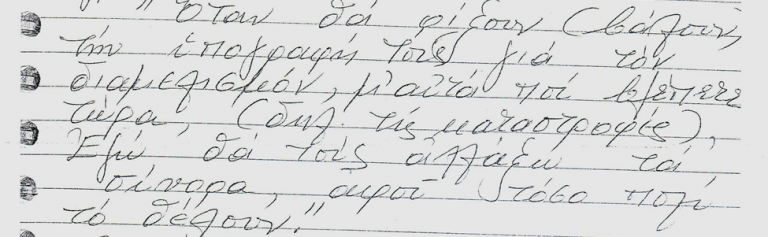 "Ὅταν θά ρίξουν (βάλουν,
τήν ὑπογραφή τους γιά τόν
διαμελισμόν, μ' αὐτά πού βλέπετε
τώρα, (δηλ. τίς καταστροφές),
Ἐγώ θά τούς ἀλλάξω τά
σύνορα, ἀφοῦ τόσο πολύ
τό θέλουν."